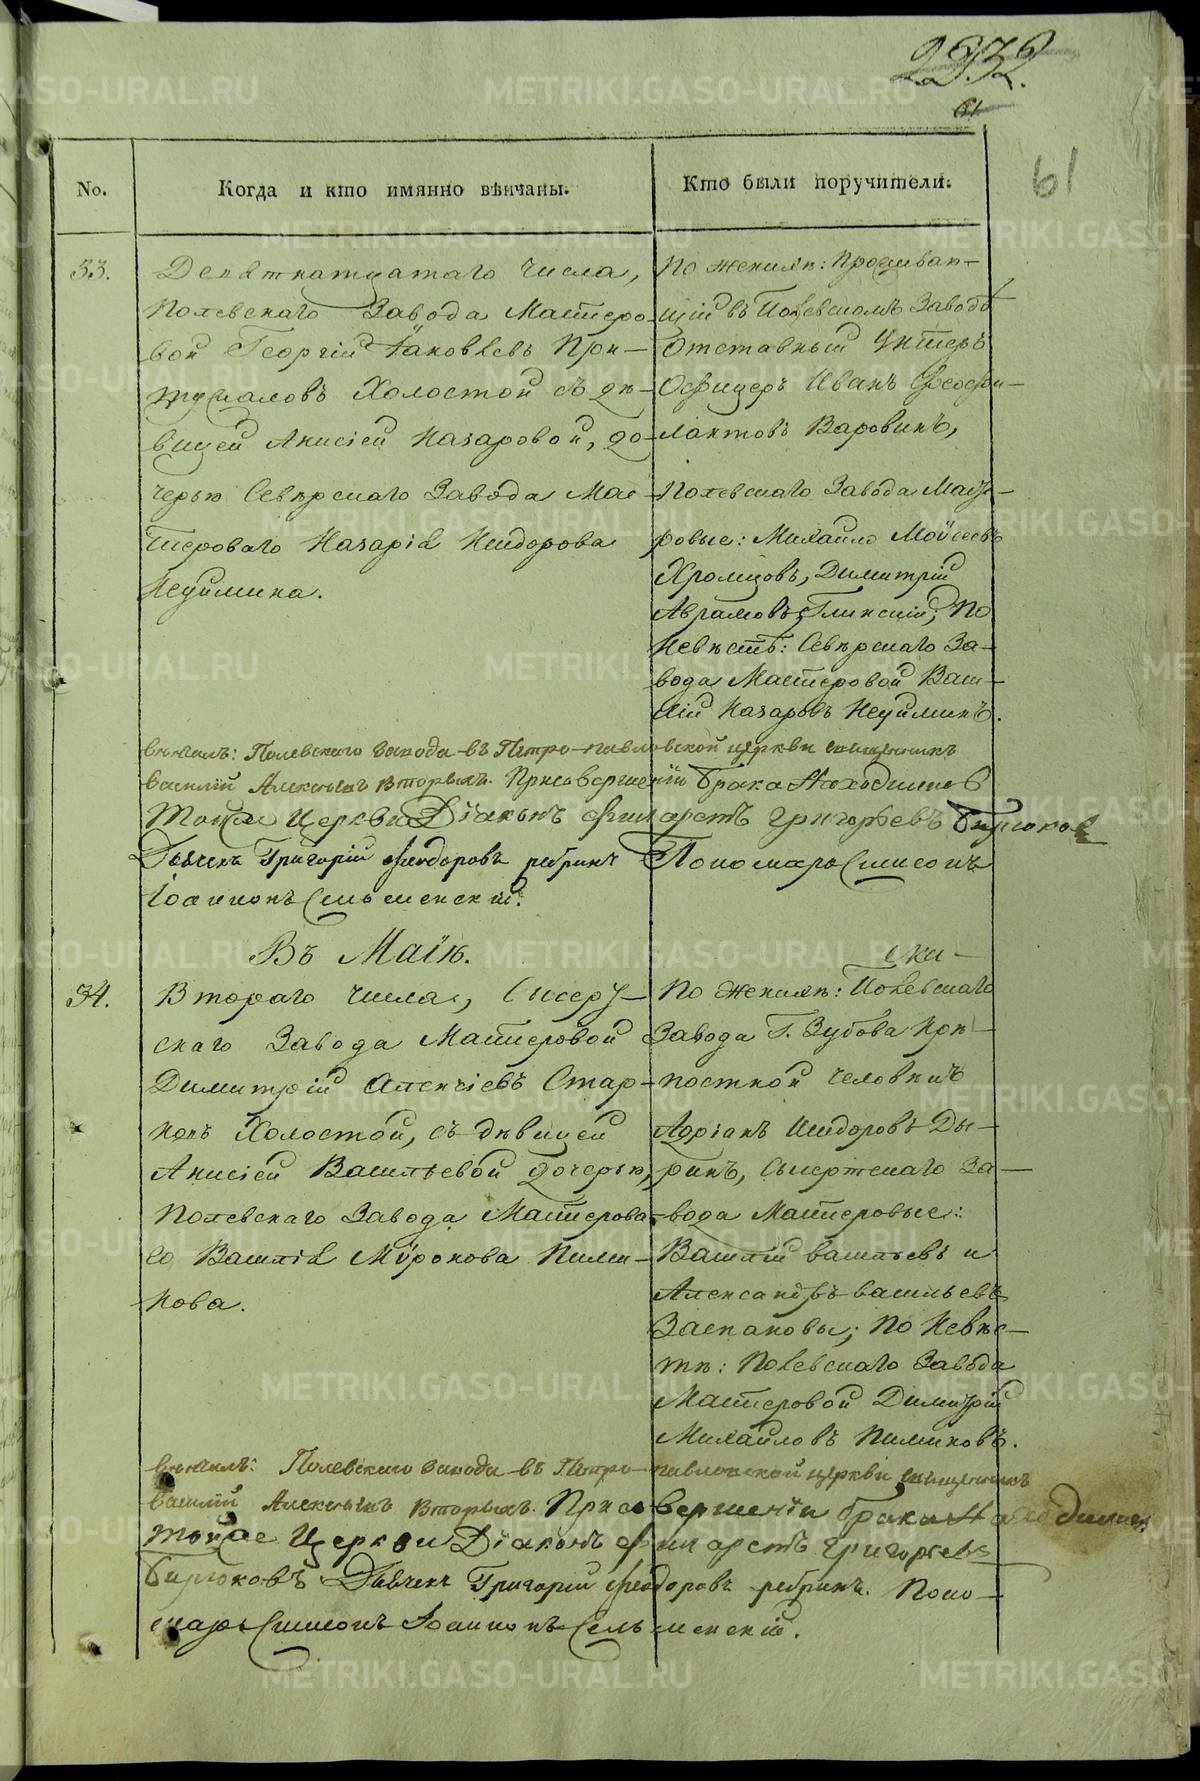 2232.
61
61
No.
Когда и кто имянно вѣнчаны.
Кто были поручители.
33.
Девятнатцатаго числа,
Полевскаго Завода Мастеро-
вой Георгій Яковлевъ При-
холостой съ дѣ-
вицей Анисіей Назаровой, до-
черью Сѣверскаго Завода Мас-
тероваго Назаріа Исидорова
Неуймина.
По женихѣ: Проживаю-
щій въ Полевскомъ Заводѣ
Отставный Унтеръ
Офицеръ Иванъ Феофи-
лактовъ Варовинъ,
Полевскаго Завода Масте-
ровые: Михайло Моѵсеевъ
Хромцовъ, Димитрій
Аврамовъ Глинскій; По
Невѣстѣ: Сѣверскаго За-
вода Мастеровой Васи-
лій Назаровъ Неуйминъ.
вѣнчалъ: Полевскаго завода въ Петро-павловской церкви священникъ
василій Алексѣевъ Вторыхъ. При совершеніи брака Находились
тойже Церкви Діаконъ Филаретъ Григорьевъ Бирюков
Дьячекъ Григорій Феодоровъ ребринъ Пономарь Симеонъ
Іоанновъ
Въ Маїѣ.
34.
Втораго числа, Сысерт-
скаго Завода Мастеровой
Димитрій Алексіевъ Стар-
ковъ Холостой, съ дѣвицей
Анисіей Васильевой дочерью,
Полевскаго Завода Мастерова-
го Василіа Мѵронова Пили-
кова.
По женихѣ: Полевскаго
Завода Г. Зубова Крѣ-
постной человѣкъ
Адріанъ Исидоровъ Ды-
ринъ, Сысертскаго За-
вода Мастеровые:
Василій васильевъ и
Александръ васильевъ
По Невѣс-
тѣ: Полевскаго Завода
Мастеровой Димитрій
Михайловъ Пиликовъ.
вѣнчалъ: Полевскаго завода въ Петро-павловской церкви священникъ
василій Алексѣевъ Вторыхъ. При совершеніи брака Находились
тойже Церкви Діаконъ Филаретъ Григорьевъ
Бирюковъ Дьячекъ Григорій Феодоровъ ребринъ. Поно-
марь Симеонъ Іоанновъ
METRIKI.GASO-URAL.RU